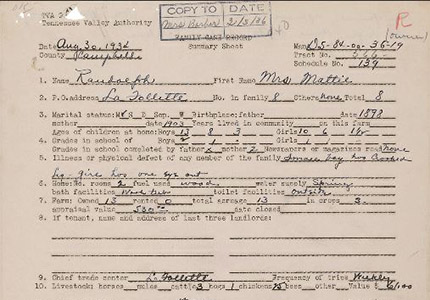 TVA 2
COPY TO DATE
Tennessee Valley Authority
Mrs Barker 2/5/36
R
FAMILY CASE RECORD
(owner)
Date Aug. 30, 1934 Summary Sheet Map D5-84-00-36-19
County Campbell Tract No.
Schedule No. 139
1. Name Randolph First Name Mrs Mattie
2. P.O. address La Follette No. in family 8 Others none Total 8
3. Marital status: M S D Sep. W Birthplace: father 1898
mother date 1903 Years lived in community on this farm
Ages of children at home: Boys 13 8 3 Girls 10 6
4. Grades in school of Boys Girls
Grades in school completed by father mother 2 Newspapers or magazines read none
5. Illness or physical defect of any member of the family boy has crooked
leg - girl has one eye out
6. Home: No. rooms 2 fuel used wood water supply Spring
bath facilities toilet facilities outside
7. Farm: Owned 13 rented 0 total acreage 13 in crops 3
appraisal value date closed
8. If tenant, name and address of last three landlords:
9. Chief trade center La Follette Frequency of trips Weekly
10. Livestock: horses mules cattle 3 hogs 1 chickens 25 bees other Value $